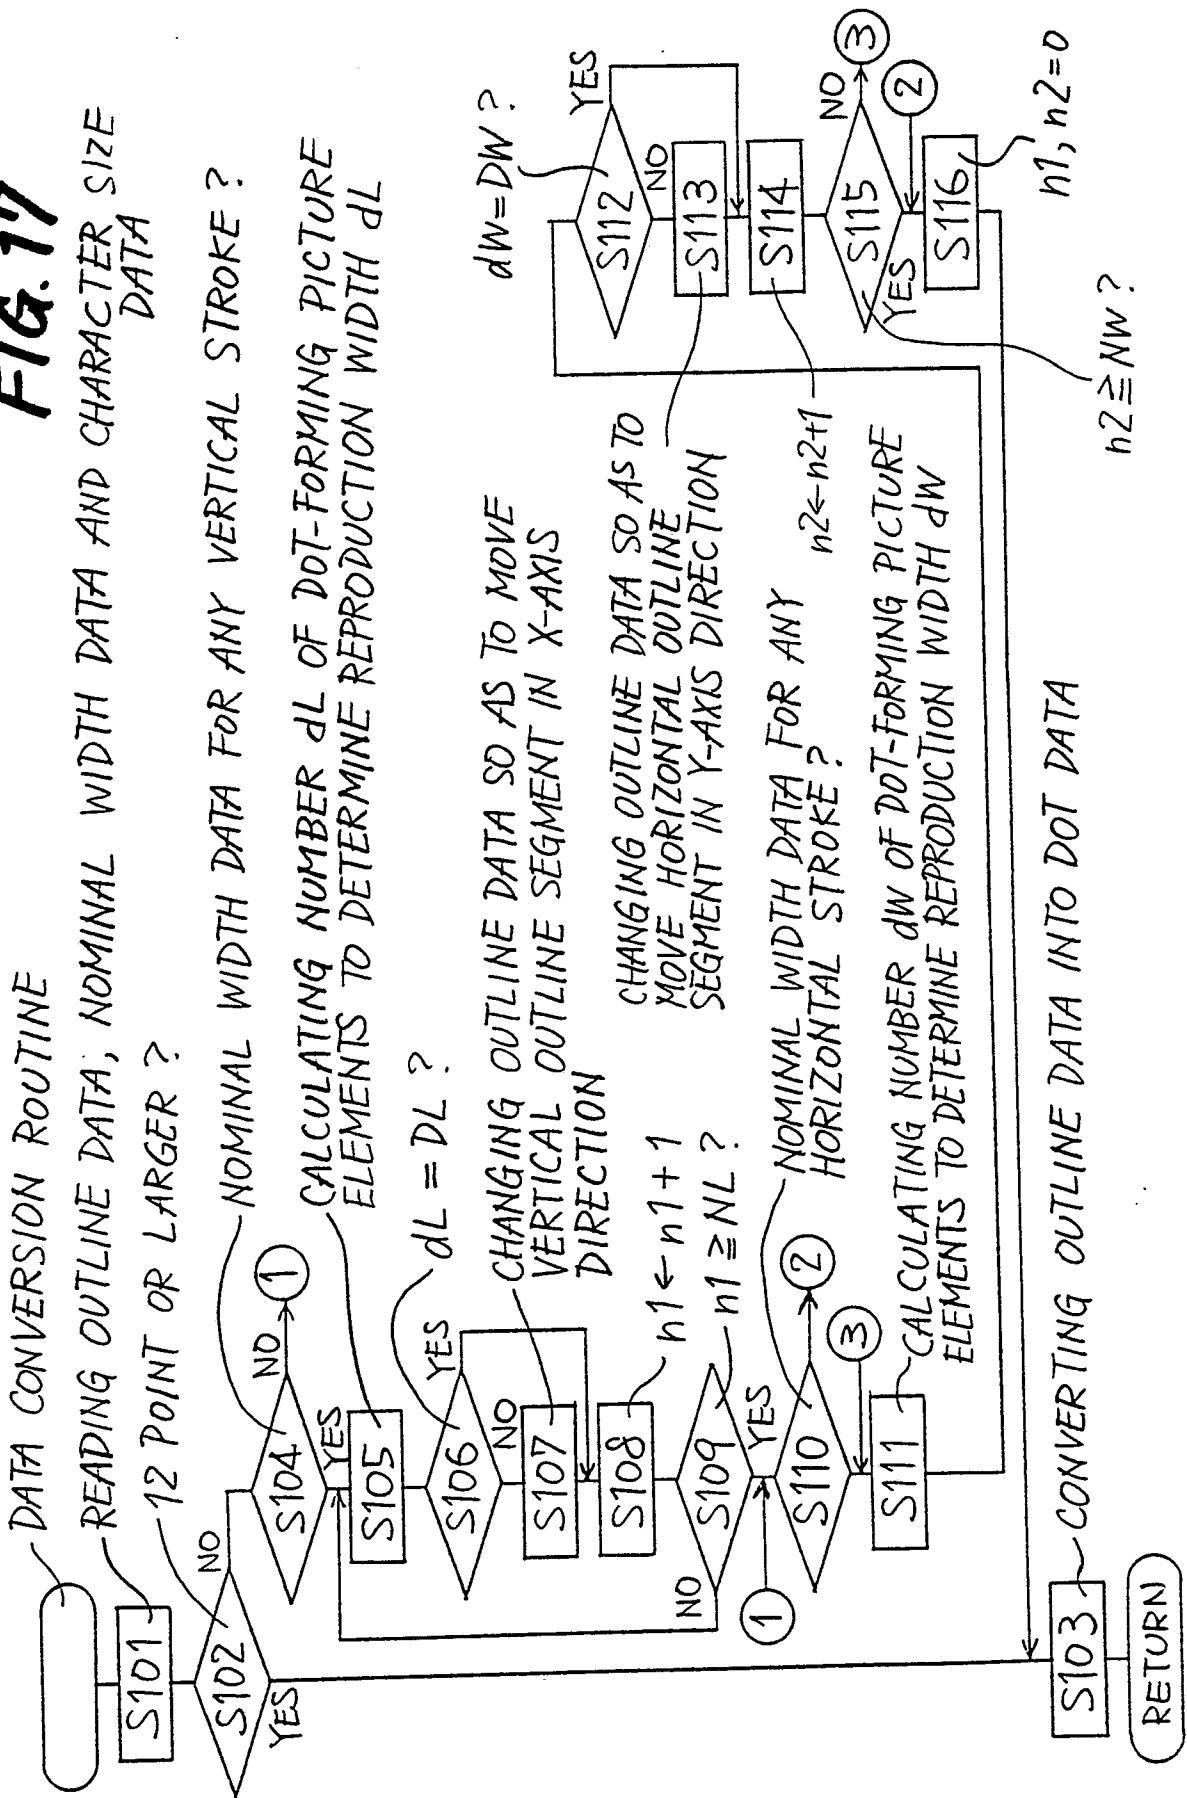 FIG. 17
DATA CONVERSION ROUTINE
READING OUTLINE DATA, NOMINAL WIDTH DATA AND CHARACTER SIZE
DATA
S101
12 POINT OR LARGER ?
S102
NO
YES
NOMINAL WIDTH DATA FOR ANY VERTICAL STROKE ?
S104
NO
1
YES
CALCULATING NUMBER dL OF DOT-FORMING PICTURE
ELEMENTS TO DETERMINE REPRODUCTION WIDTH dL
S105
dL = DL ?
S106
YES
NO
CHANGING OUTLINE DATA SO AS TO MOVE
VERTICAL OUTLINE SEGMENT IN X-AXIS
DIRECTION
S107
n1 ← n1 + 1
S108
n1 ≧ NL ?
S109
NO
YES
1
NOMINAL WIDTH DATA FOR ANY
HORIZONTAL STROKE ?
S110
2
3
CALCULATING NUMBER dW OF DOT-FORMING PICTURE
ELEMENTS TO DETERMINE REPRODUCTION WIDTH dW
S111
dW = DW ?
S112
YES
NO
CHANGING OUTLINE DATA SO AS TO
MOVE HORIZONTAL OUTLINE
SEGMENT IN Y-AXIS DIRECTION
S113
n2←n2+1
S114
S115
NO
3
YES
2
n2 ≧ NW ?
S116
n1, n2=0
S103
CONVERTING OUTLINE DATA INTO DOT DATA
RETURN